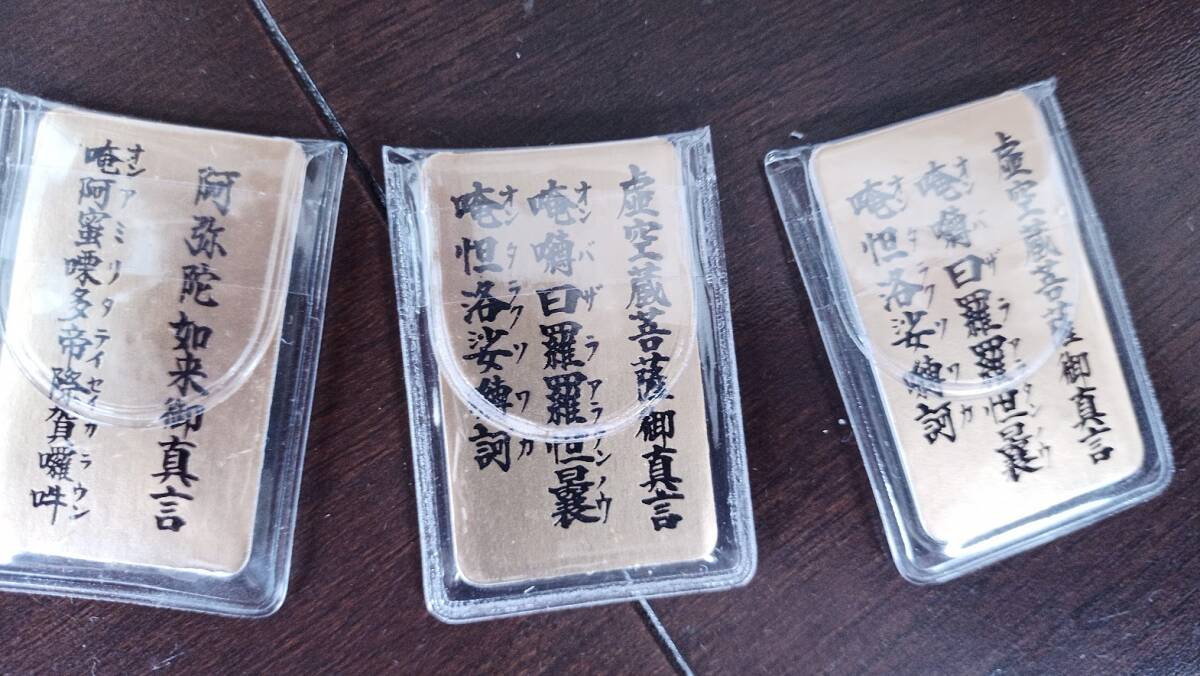 阿弥陀如来御真言
オンアミリタテイセイカラウン
唵阿蜜嘌多帝際賀囉吽
虚空蔵菩薩御真言
オンバザラアラタンノウ
唵嚩曰羅羅怛曩
オンタラクソワカ
唵怛洛娑縛訶
虚空蔵菩薩御真言
オンバザラアラタンノウ
唵嚩曰羅羅怛曩
オンタラクソワカ
唵怛洛娑縛訶